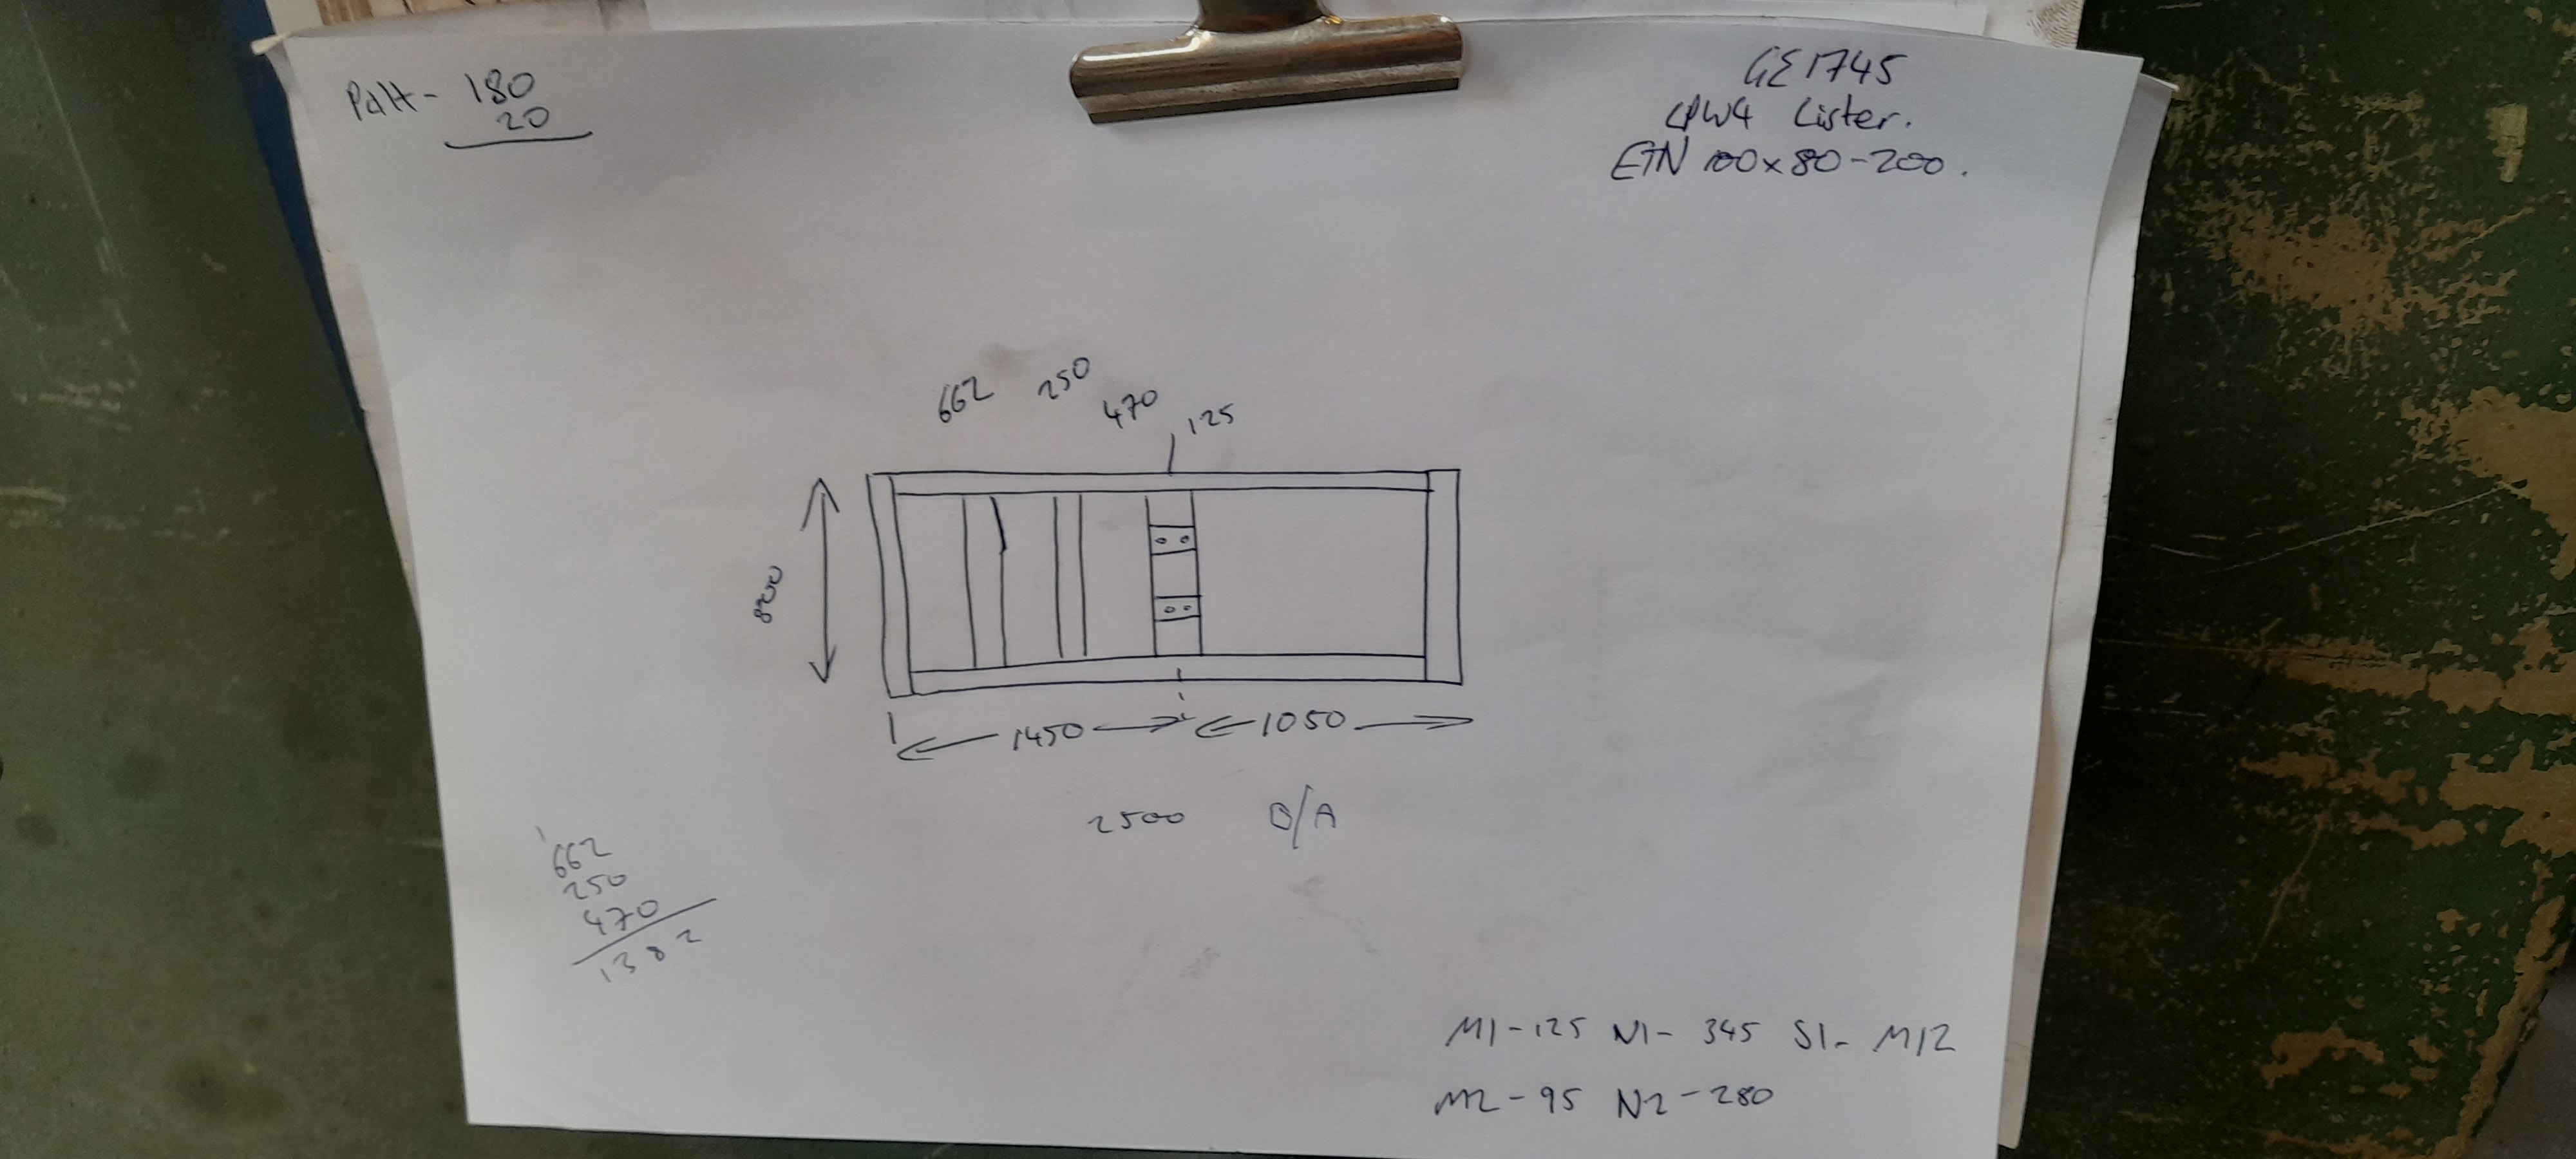 180
20
GE1745
LPW4 Lister.
ETN 100x80-200.
662 250 470 125
800
1450 1050
2500 O/A
662
250
470
1382
M1-125 N1- 345 S1- M12
M2-95 N2-280